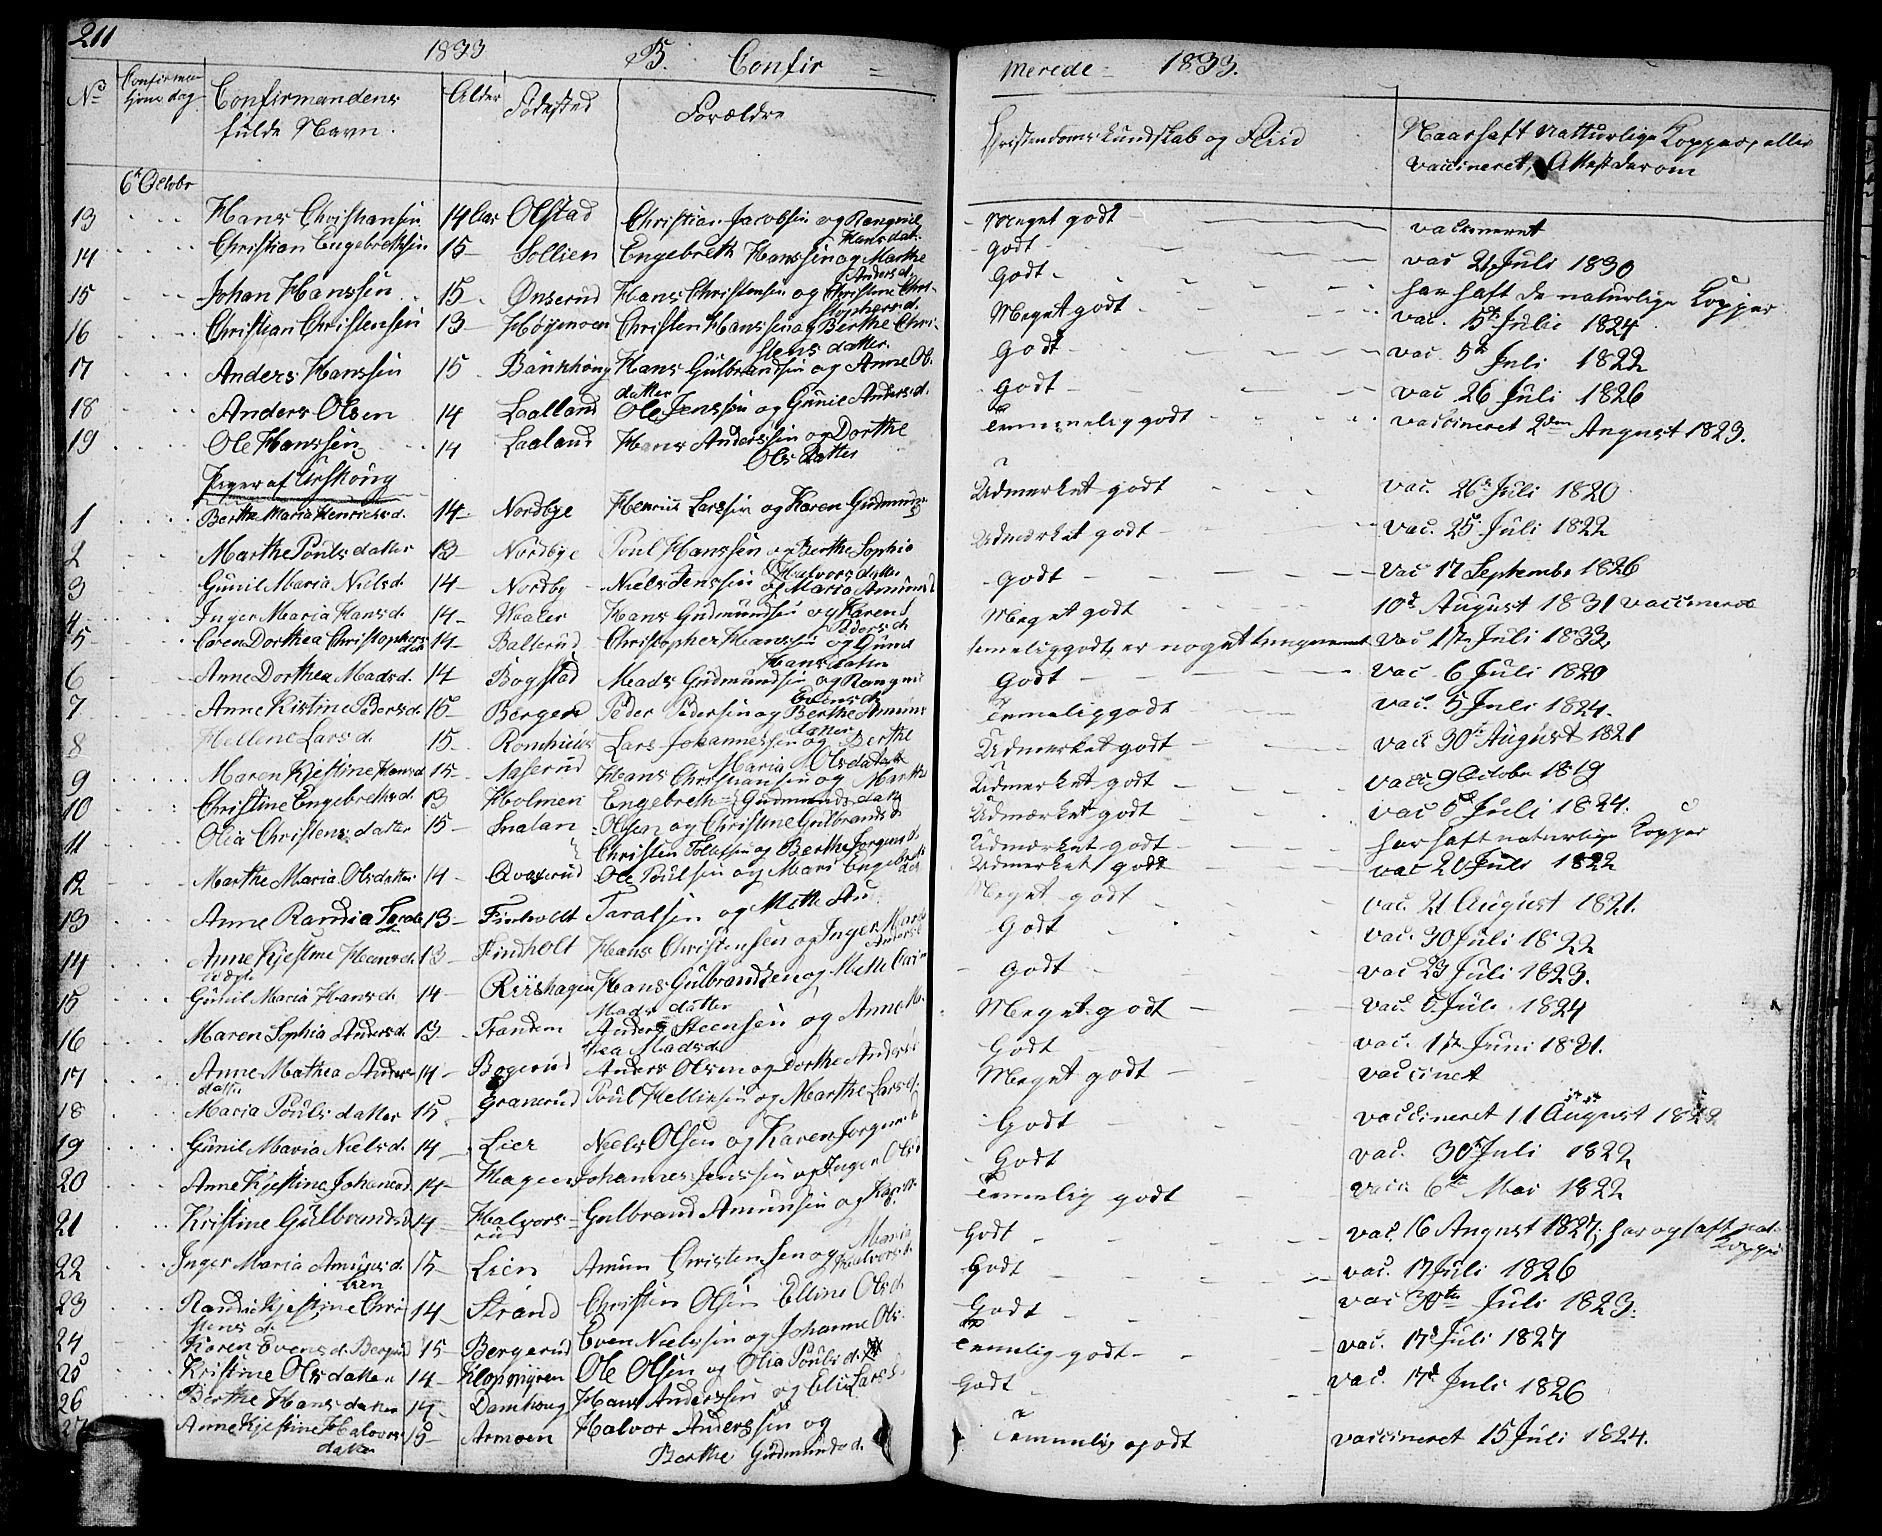 211
1833 B. Confir = merede = 1833.
No Confirma tions dag Confirmandens fulde Navn. Alder Födested Forældre Christendoms kundskab og Fliid Naar haft naturlige Kopper, eller vaccineret, Attest derom
6te Octobr
13 Hans Christiansen 14 Aar Olstad Christian Jacobsen og Rangnil Hansdat. Meget godt vaccineret
14 Christian Engebrethsen 15 Sollien Engebreth Hanssen og Marthe Andersd. godt vac 21 Juli 1830
15 Johan Hanssen 15 Onsrud Hans Christensen og Christine Christophersd. Godt har haft de naturlige Kopper
16 Christian Christensen 13 Höjemoen Christen Hanssen og Berthe Christensdatter Meget godt vac. 5te Julii 1824
17 Anders Hanssen 15 Bankhoug Hans Gulbrandsen og Anne Olsdatter Godt vac. 5te Juli 1822
18 Anders Olsen 14 Laaland Ole Jenssen og Gunil Andersd. godt vac 26 Juli 1826
19 Ole Hanssen 14 Laaland Hans Anderssen og Dorthe Olsdatter Temmelig godt vaccineret 2den August 1823.
Piger af Urskoug
1 Berthe Maria Henriksd. 14 Nordbye Henrich Larssen og Karen Gudmunds Udmerket godt vac. 26te Juli 1820
2 Marthe Poulsdatter 13 Nordbye Poul Hanssen og Berthe Sophie Halvorsdatter Udmerket godt vac. 25 Juli 1822
3 Gunil Maria Nielsd. 14 Nordby Niels Jenssen og Maria Amunds godt vac 17 Septembr 1826
4 Inger Maria Hansd. 14 Waaler Hans Gudmundsen og Karen Pedersd. Meget godt 10de August 1831 vaccineret
5 Caren Dorthea Christophersdatter 14 Balterud Christopher Hanssen og Gunil Hansdatter temelig godt, er noget tungnemt vac 17 Juli 1833
6 Anne Dorthea Madsd. 14 Bogstad Mads Gudmundsen og Rangni Evensd. Godt vac 6 Juli 1820
7 Anne Kistine Pedersd 15 Bergen Peder Pedersen og Berthe Amundsdatter Temelig godt vac. 5 Juli 1824.
8 Hellene Larsd. 15 Romhuus Lars Johannessen og Berthe Maria Olsdatter Udmerket godt vac 30te August 1821
9 Maren Kjestine Hansd 15 Naserud Hans Christiansen og Marthe Gudmundsdatter Udmerket godt vac. 9 October 1819
10 Christine Engebrethsd. 13 Holmen Engebreth Olsen og Christine Gulbrandsd Udmærket godt vac 5te Juli 1824.
11 Olia Christensdatter 15 Snalan Christen Tollefsen og Berthe Jorgensd Udmærket godt har haft naturlige Kopper
12 Marthe Maria Olsdatter 14 Qvaserud Ole Poulsen og Mari Engebrethsdat Udmerket godt vac 20 Juli 1822
13 Anne Randia 13 Finholdt Taralsen og Mette Meget godt vac. 21 August 1821.
14 Anne Kjestine Hansd. 13 Findholt Hans Christensen og Inger Andersd Godt vac. 30 Juli 1822
15 Gunil Maria Hansd. 14 Riishagen Hans Gulbrandsen og Mette Madsdatter Godt vac 23 Juli 1823.
16 Maren Sophia Andersd. 13 Tranden Anders Steensen og Anne Mathea Madsd. Meget godt vac. 5 Juli 1824
17 Anne Mathea Andersdatter 14 Bogerud Anders Olsen og Dorthe Andersd Godt vac. 17 Juni 1831.
18 Maria Poulsdatter 15 Granerud Poul Helliesen og Marthe Larsd. Meget godt vaccinet
19 Gunil Maria Nielsd. 14 Lier Niels Olsen og Karen Jorgensd Godt vaccineret 11 August
20 Anne Kjestine Johannesd 14 Hagen Johannes Jenssen og Inger Olsd Godt vac. 30te Juli 1822
21 Kristine Gulbrandsd 14 Halvorsrud Gulbrand Amundsen og Temelig godt vac. 6te Mai 1822
22 Inger Maria Amunsd. Lien 15 Lien Amun Christensen og Maria Halvorsd. Godt vac. 16 August 1827, har og haft nat. Kopper
23 Randi Kjestine Christensd. 14 Strand Christen Olsen Elline Olsd. Godt vac. 17 Juli 1826
24 Karen Evensd. Bergrud 15 Bergerud Even Nielssen og Johanne Ols. Godt vac 30te Juli 1823.
25 Kristine Olsdatter 14 Klopmyren Ole Olsen og Olia Poulsd. temelig godt vac. 17de Juli 1827
26 Berthe Hansdatter 14 Damhoug Hans Anderssen og Eli Larsd. Godt vac. 17de Juli 1826
27 Anne Kjestine Halvorsdatter 15 Armoen Halvor Anderssen og Berthe Gudmundsd. Temmelig godt vaccineret 15 Juli 1824.